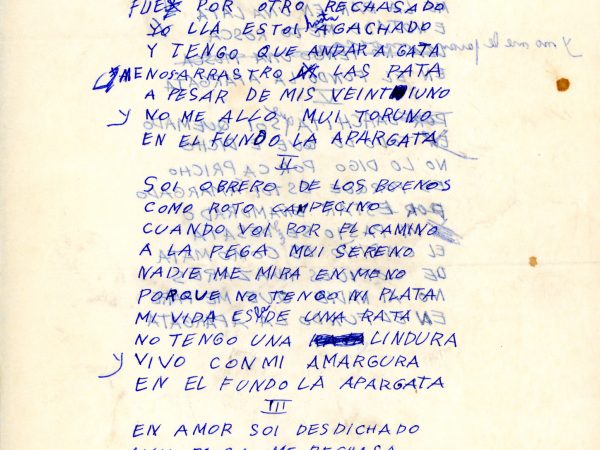 FUE POR OTRO RECHASADO
YO LLA ESTOI hata AGACHADO
Y TENGO QUE ANDAR A GATA
y MENOS ARRASTRO LAS PATA
A PESAR DE MIS VEINTIUNO
y NO ME ALLO MUI TORUNO
EN EL FUNDO LA APARGATA
II
SOI OBRERO DE LOS BUENOS
COMO ROTO CAMPECINO
CUANDO VOI POR EL CAMINO
A LA PEGA MUI SERENO
NADIE ME MIRA EN MENO
PORQUE NO TENGO NI PLATA
MI VIDA ES DE UNA RATA
NO TENGO UNA LINDURA
y VIVO CON MI AMARGURA
EN EL FUNDO LA APARGATA
III
EN AMOR SOI DESDICHADO